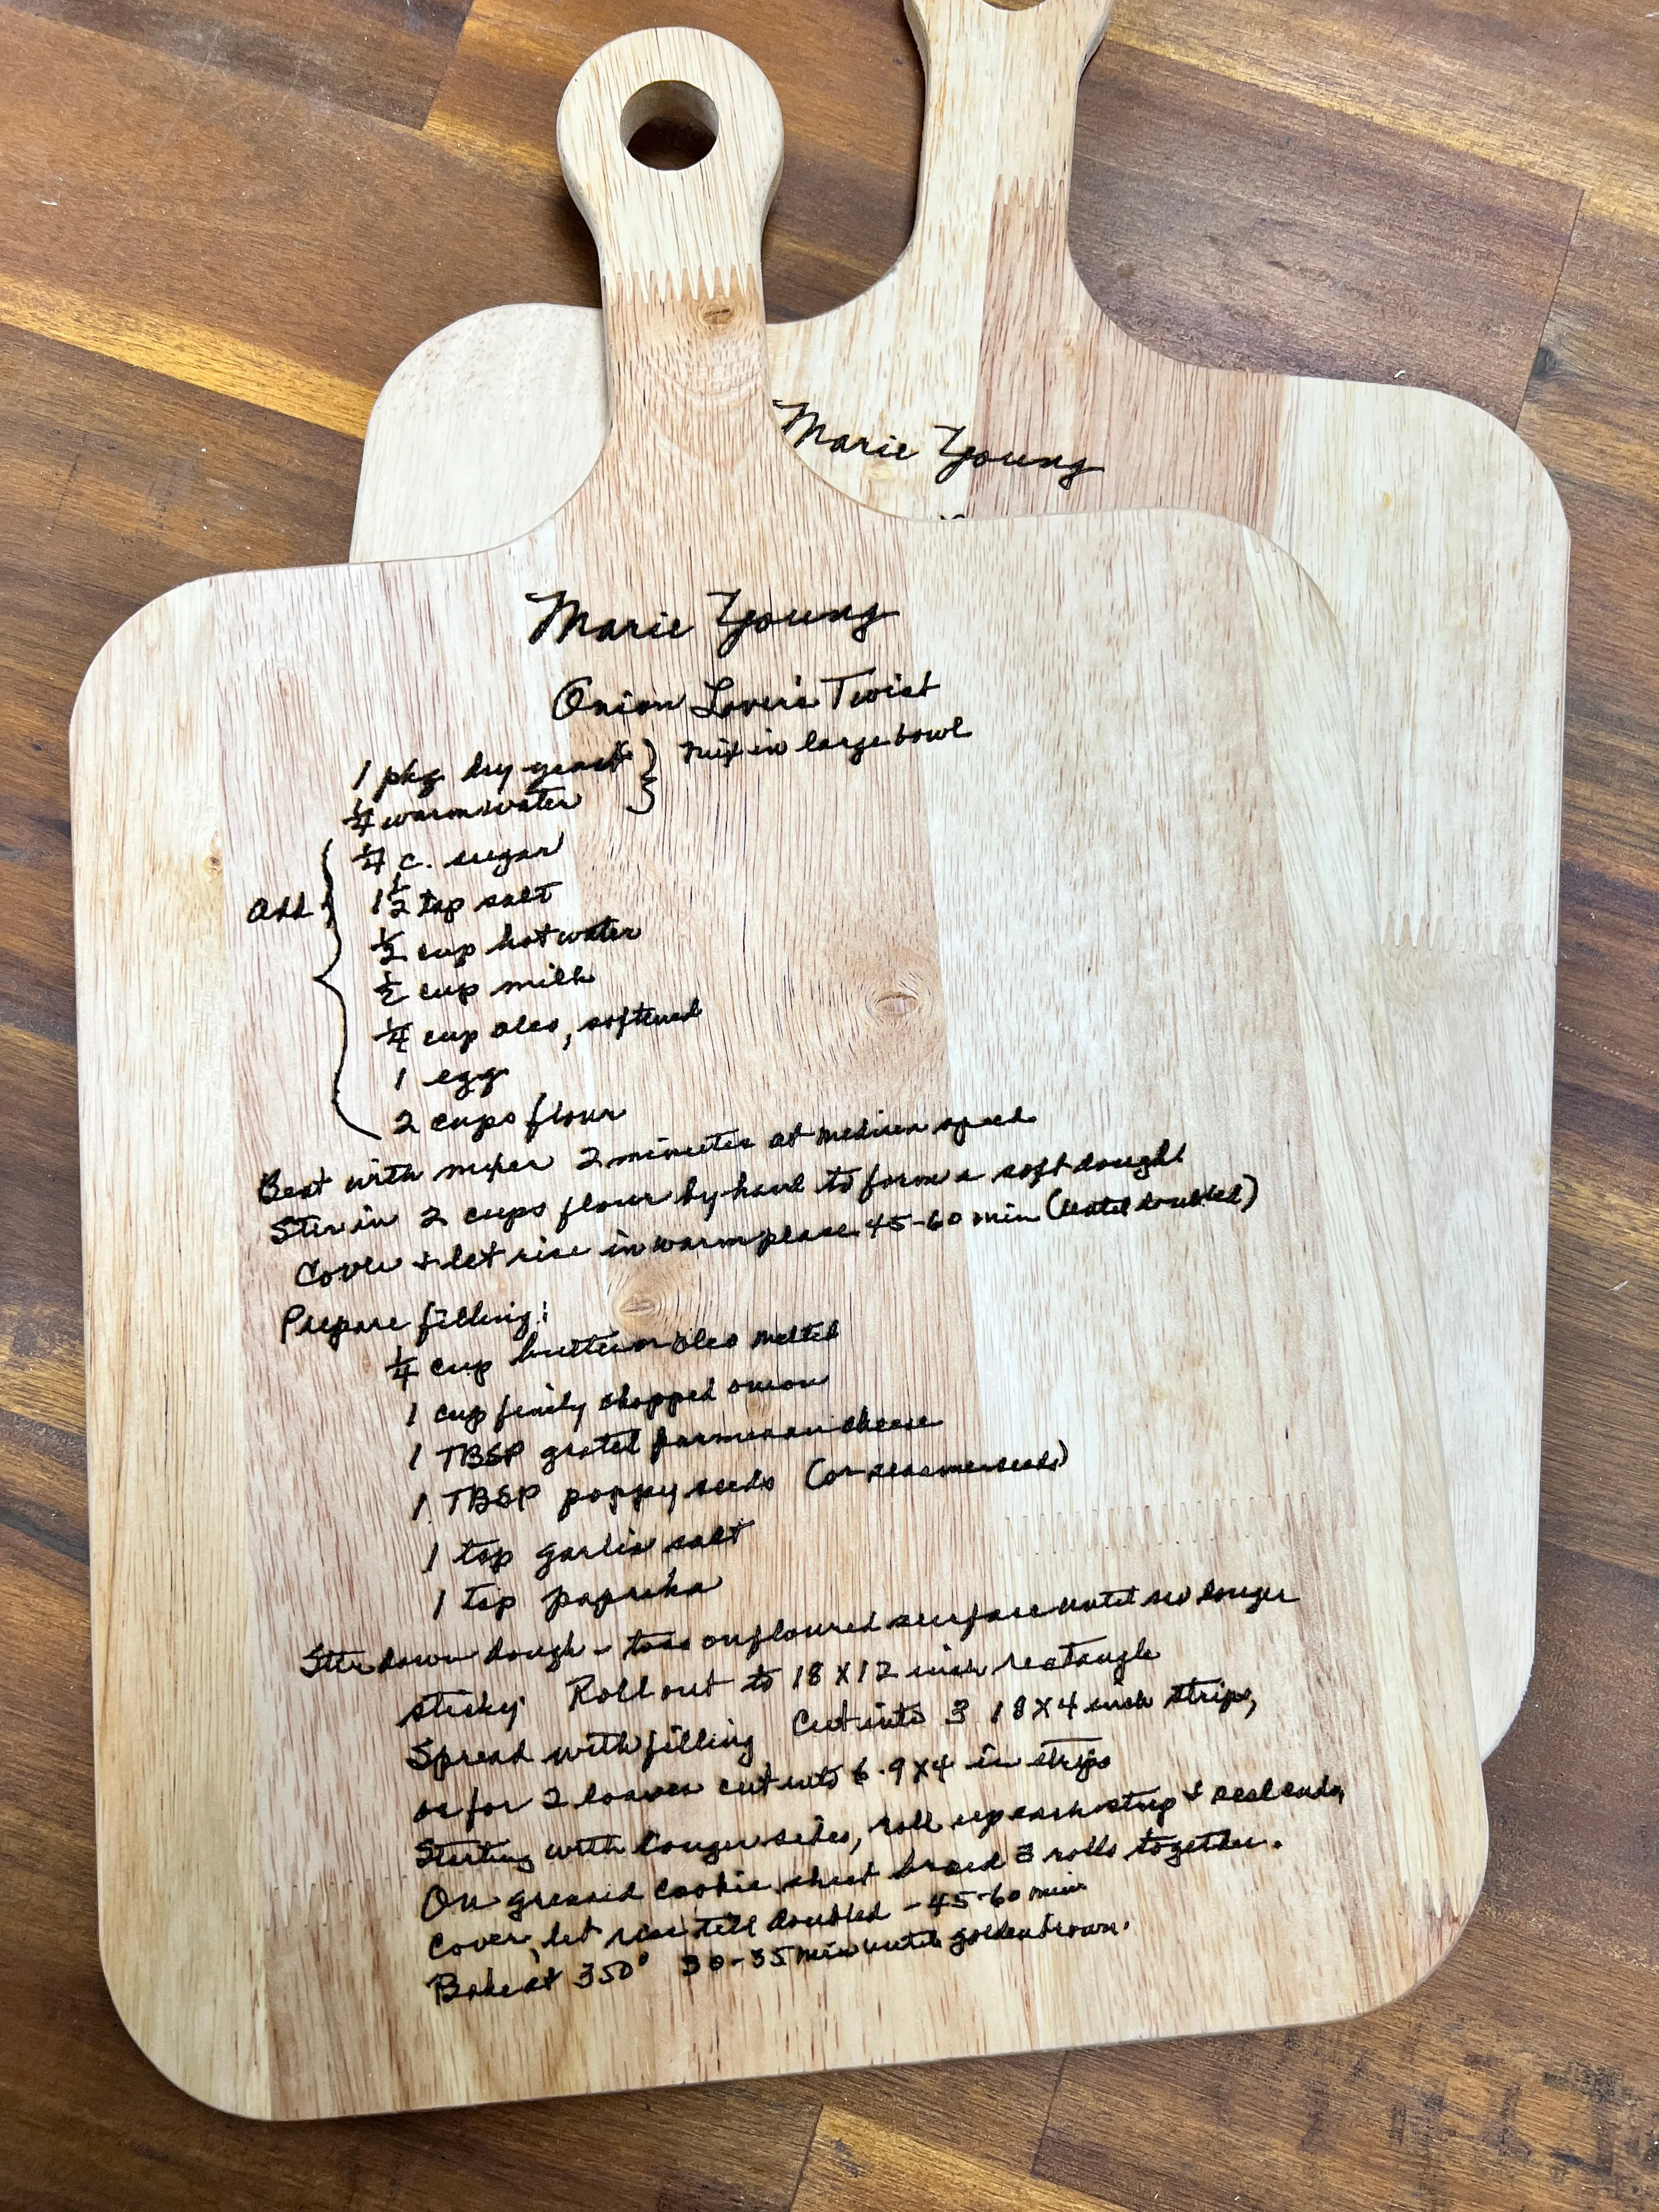 Marie Young
Marie Young
Onion Lover's Twist
1 pkg dry yeast } Mix in large bowl
1/4 warm water
1/4 c. sugar
Add { 1 1/2 tsp salt
1/2 cup hot water
1/2 cup milk
1/4 cup oleo, softened
1 egg
2 cups flour
Beat with mixer 2 minutes at medium speed
Stir in 2 cups flour by hand to form a soft dough.
Cover + let rise in warm place 45-60 min (until doubled)
Prepare filling:
1/4 cup butter or oleo melted
1 cup finely chopped onion
1 TBSP grated parmesan cheese
1 TBSP poppy seeds (or seasame seeds)
1 tsp garlic salt
1 tsp paprika
Stir down dough - toss on floured surface until no longer
sticky. Roll out to 18 X 12 inch rectangle
Spread with filling Cut into 3 18 X 4 inch strips,
or for 2 loaves cut into 6 - 9 X 4 in strips
Starting with longer sides, roll up each strip + seal ends,
On greased cookie sheet braid 3 rolls together.
Cover, let rise till doubled - 45-60 min
Bake at 350° 30-35 min until golden brown.